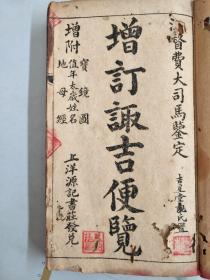 督費大司馬鑒定
增訂諏吉便覽
增附
寶鏡圖
值年太歲姓名
地母經
上洋源記書莊發兌